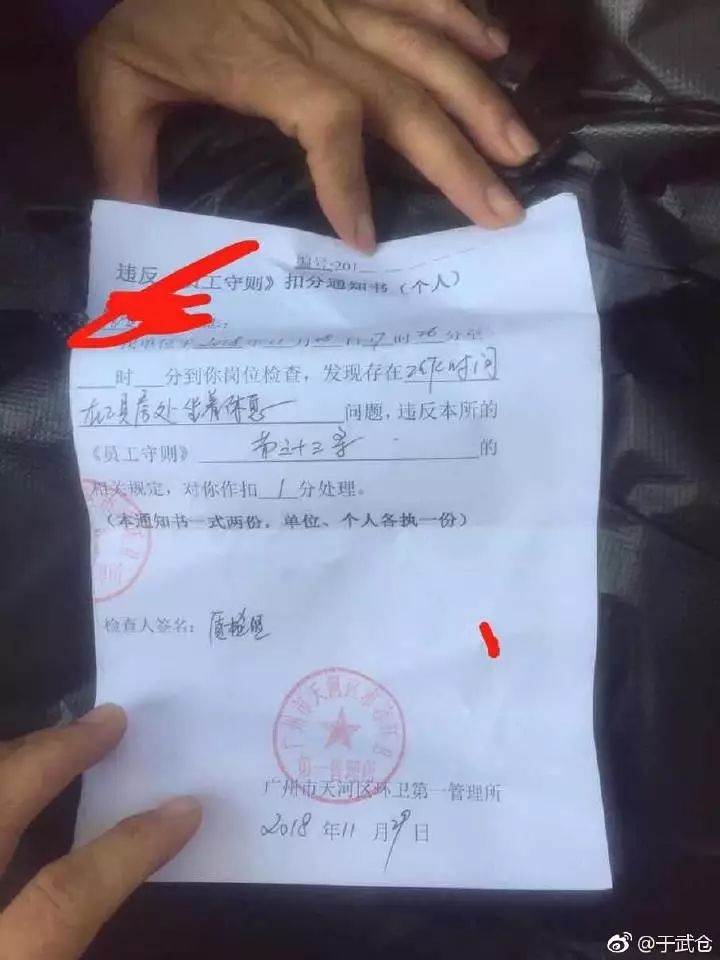 编号:201
违反《员工守则》扣分通知书(个人)
2018年11月 17时26分至
时 分到你岗位检查,发现存在 时间
在工具房处坐着休息 问题,违反本所的
《员工守则》 第三十三条 的
相关规定,对你作扣 1 分处理。
(本通知书一式两份,单位、个人各执一份)
检查人签名:
广州市天河区
第一管理所
广州市天河区环卫第一管理所
2018 年 11 月 日
@于武仓